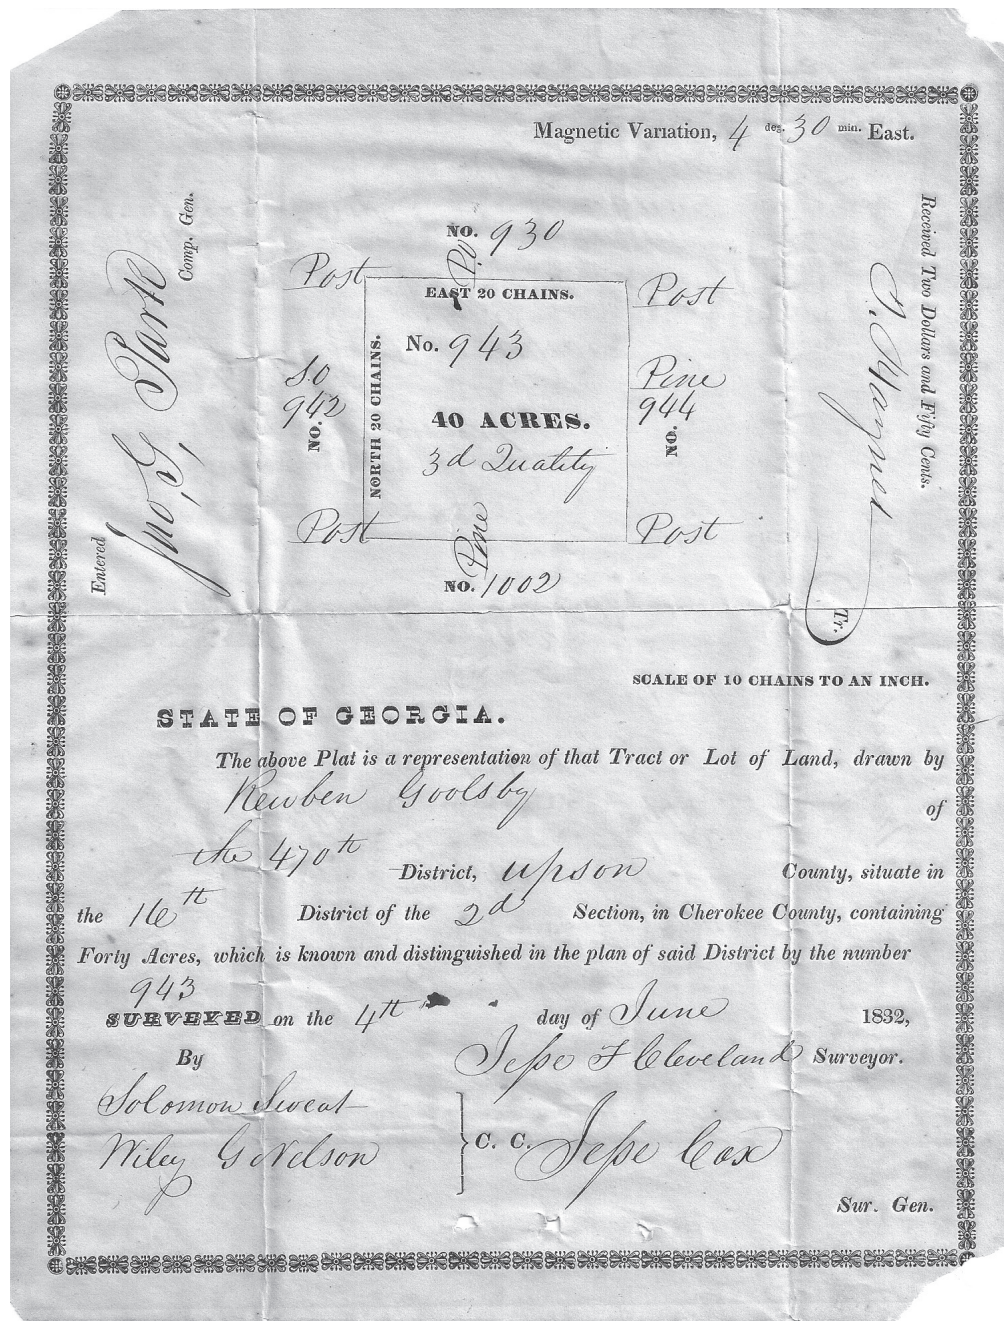 Magnetic Variation, 4 deg. 30 min. East.
Received Two Dollars and Fifty Cents.
Tr.
Entered
Jno, G, Park
Comp. Gen.
No. 930
P.O
Post
Post
EAST 20 CHAINS.
NORTH 20 CHAINS.
No. 943
40 ACRES.
3d Quality
S.O
942
NO.
Pine
944
NO.
Post
Post
Pine
NO. 1002
SCALE OF 10 CHAINS TO AN INCH.
STATE OF GEORGIA.
The above Plat is a representation of that Tract or Lot of Land, drawn by
Reuben Goolsby
of
the 470th District, Upson County, situate in
the 16th District of the 2d Section, in Cherokee County, containing
Forty Acres, which is known and distinguished in the plan of said District by the number
943
SURVEYED on the 4th day of June 1832,
By Jesse F Cleveland Surveyor.
Solomon Sweat
Wiley G Nelson
C. C. Jesse Cox
Sur. Gen.